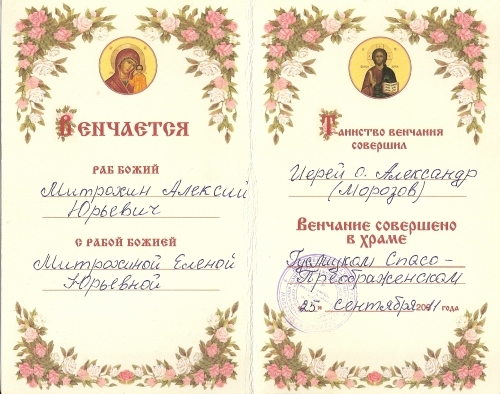 Венчается
раб Божий
Митрохин Алексий
Юрьевич
с рабой Божией
Митрохиной Еленой
Юрьевной
Таинство венчания
совершил
Иерей о. Александр
(Морозов)
Венчание совершено
в храме
Гуслицком Спасо-
Преображенском
25 сентября 2011 года